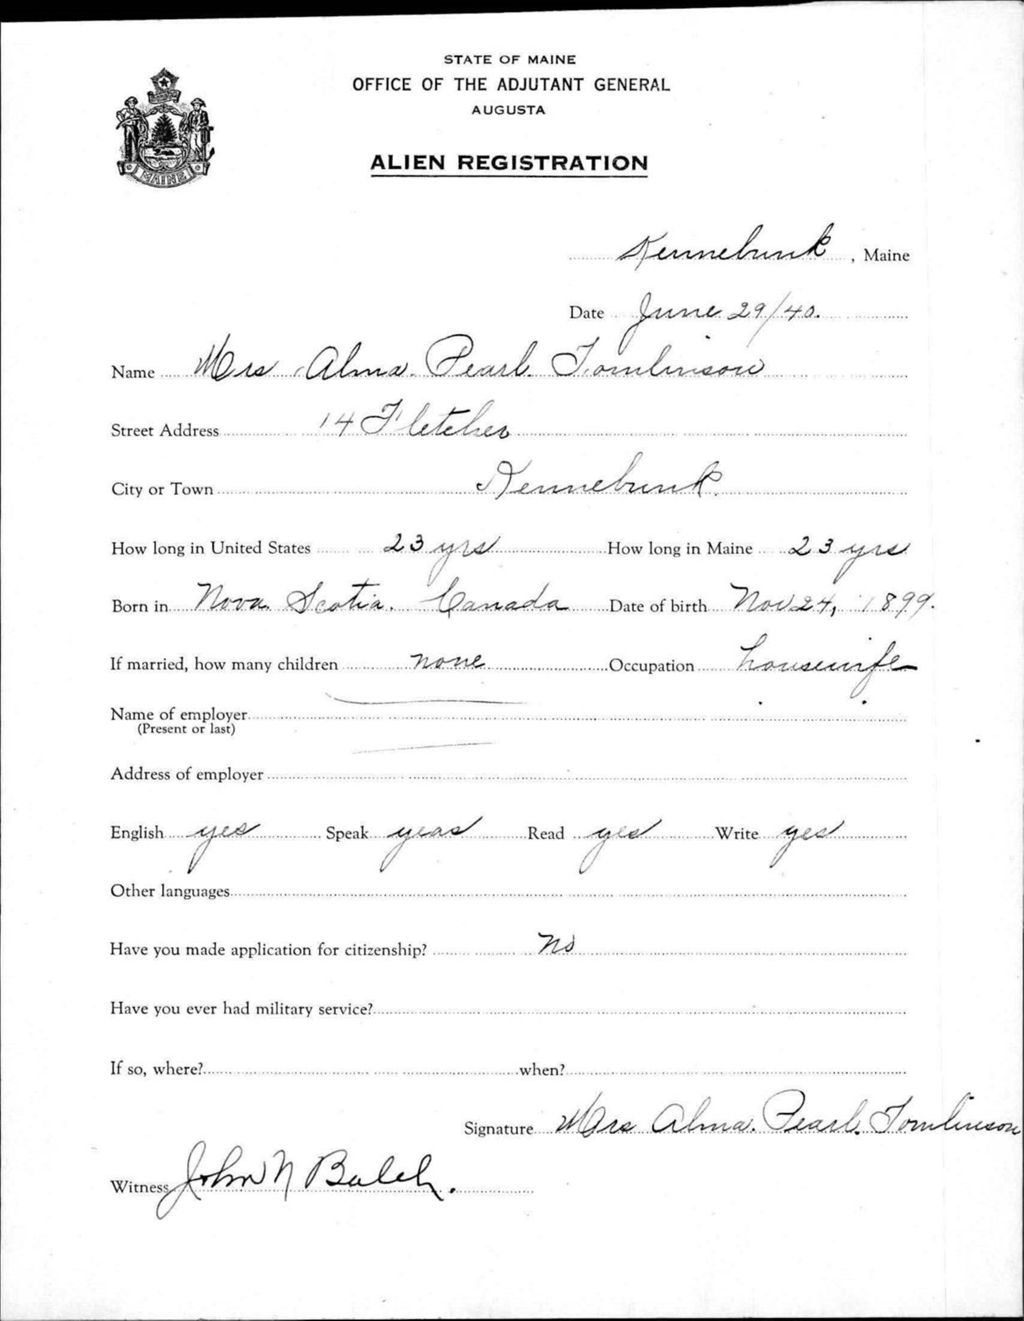 STATE OF MAINE
OFFICE OF THE ADJUTANT GENERAL
AUGUSTA
ALIEN REGISTRATION
MAINE
Kennebunk, Maine
Date June 29/40.
Name Mrs Alma. Pearl. Tomlinson
Street Address 14 Fletcher
City or Town Kennebunk.
How long in United States 23 yrs How long in Maine 23 yrs
Born in Nova Scotia. Canada Date of birth Nov 24, 1899.
If married, how many children none Occupation housewife
Name of employer
(Present or last)
Address of employer
English yes Speak yeas Read yes Write yes
Other languages
Have you made application for citizenship? No
Have you ever had military service?
If so, where? when?
Signature Mrs Alma. Pearl. Tomlinson
Witness John N Balch.